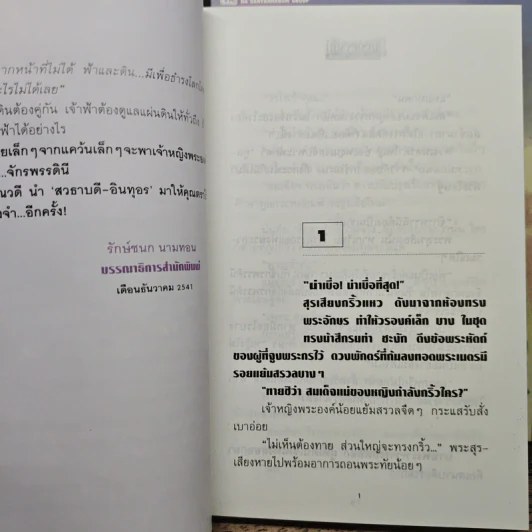 ากหน้าที่ไม่ได้ ฟ้าและดิน...มีเพื่อธำรงโลก
ะไรไม่ได้เลย"
ดินต้องคู่กัน เจ้าฟ้าต้องดูแลแผ่นดินให้ทั่วถึง
ฟ้าได้อย่างไร
ยเล็กๆจากแคว้นเล็กๆจะพาเจ้าหญิงพระอง
...จักรพรรดินี
นวดี นำ 'สวธาบดี-อินทุอร' มาให้คุณ
จำ...อีกครั้ง!
รักษ์ชนก นามทอน
บรรณาธิการสำนักพิมพ์
เดือนธันวาคม 2541
1
"น่าเบื่อ! น่าเบื่อที่สุด!"
สุรเสียงกริ้วแหว ดังมาจากห้องทรง
พระอักษร ทำให้วรองค์เล็ก บาง ในชุด
ทรงม้าสีกรมท่า ชะงัก ดึงข้อพระหัตถ์
ของผู้ที่จูงพระกรไว้ ดวงพักตร์ที่ก้มลงทอดพระเนตรมี
รอยแย้มสรวลบางๆ
"ทายซิว่า สมเด็จแม่ของหญิงกำลังกริ้วใคร?"
เจ้าหญิงพระองค์น้อยแย้มสรวลจืดๆ กระแสรับสั่ง
เบาอ่อย
"ไม่เห็นต้องทาย ส่วนใหญ่จะทรงกริ้ว..." พระสุร-
เสียงหายไปพร้อมอาการถอนพระทัยน้อยๆ
1